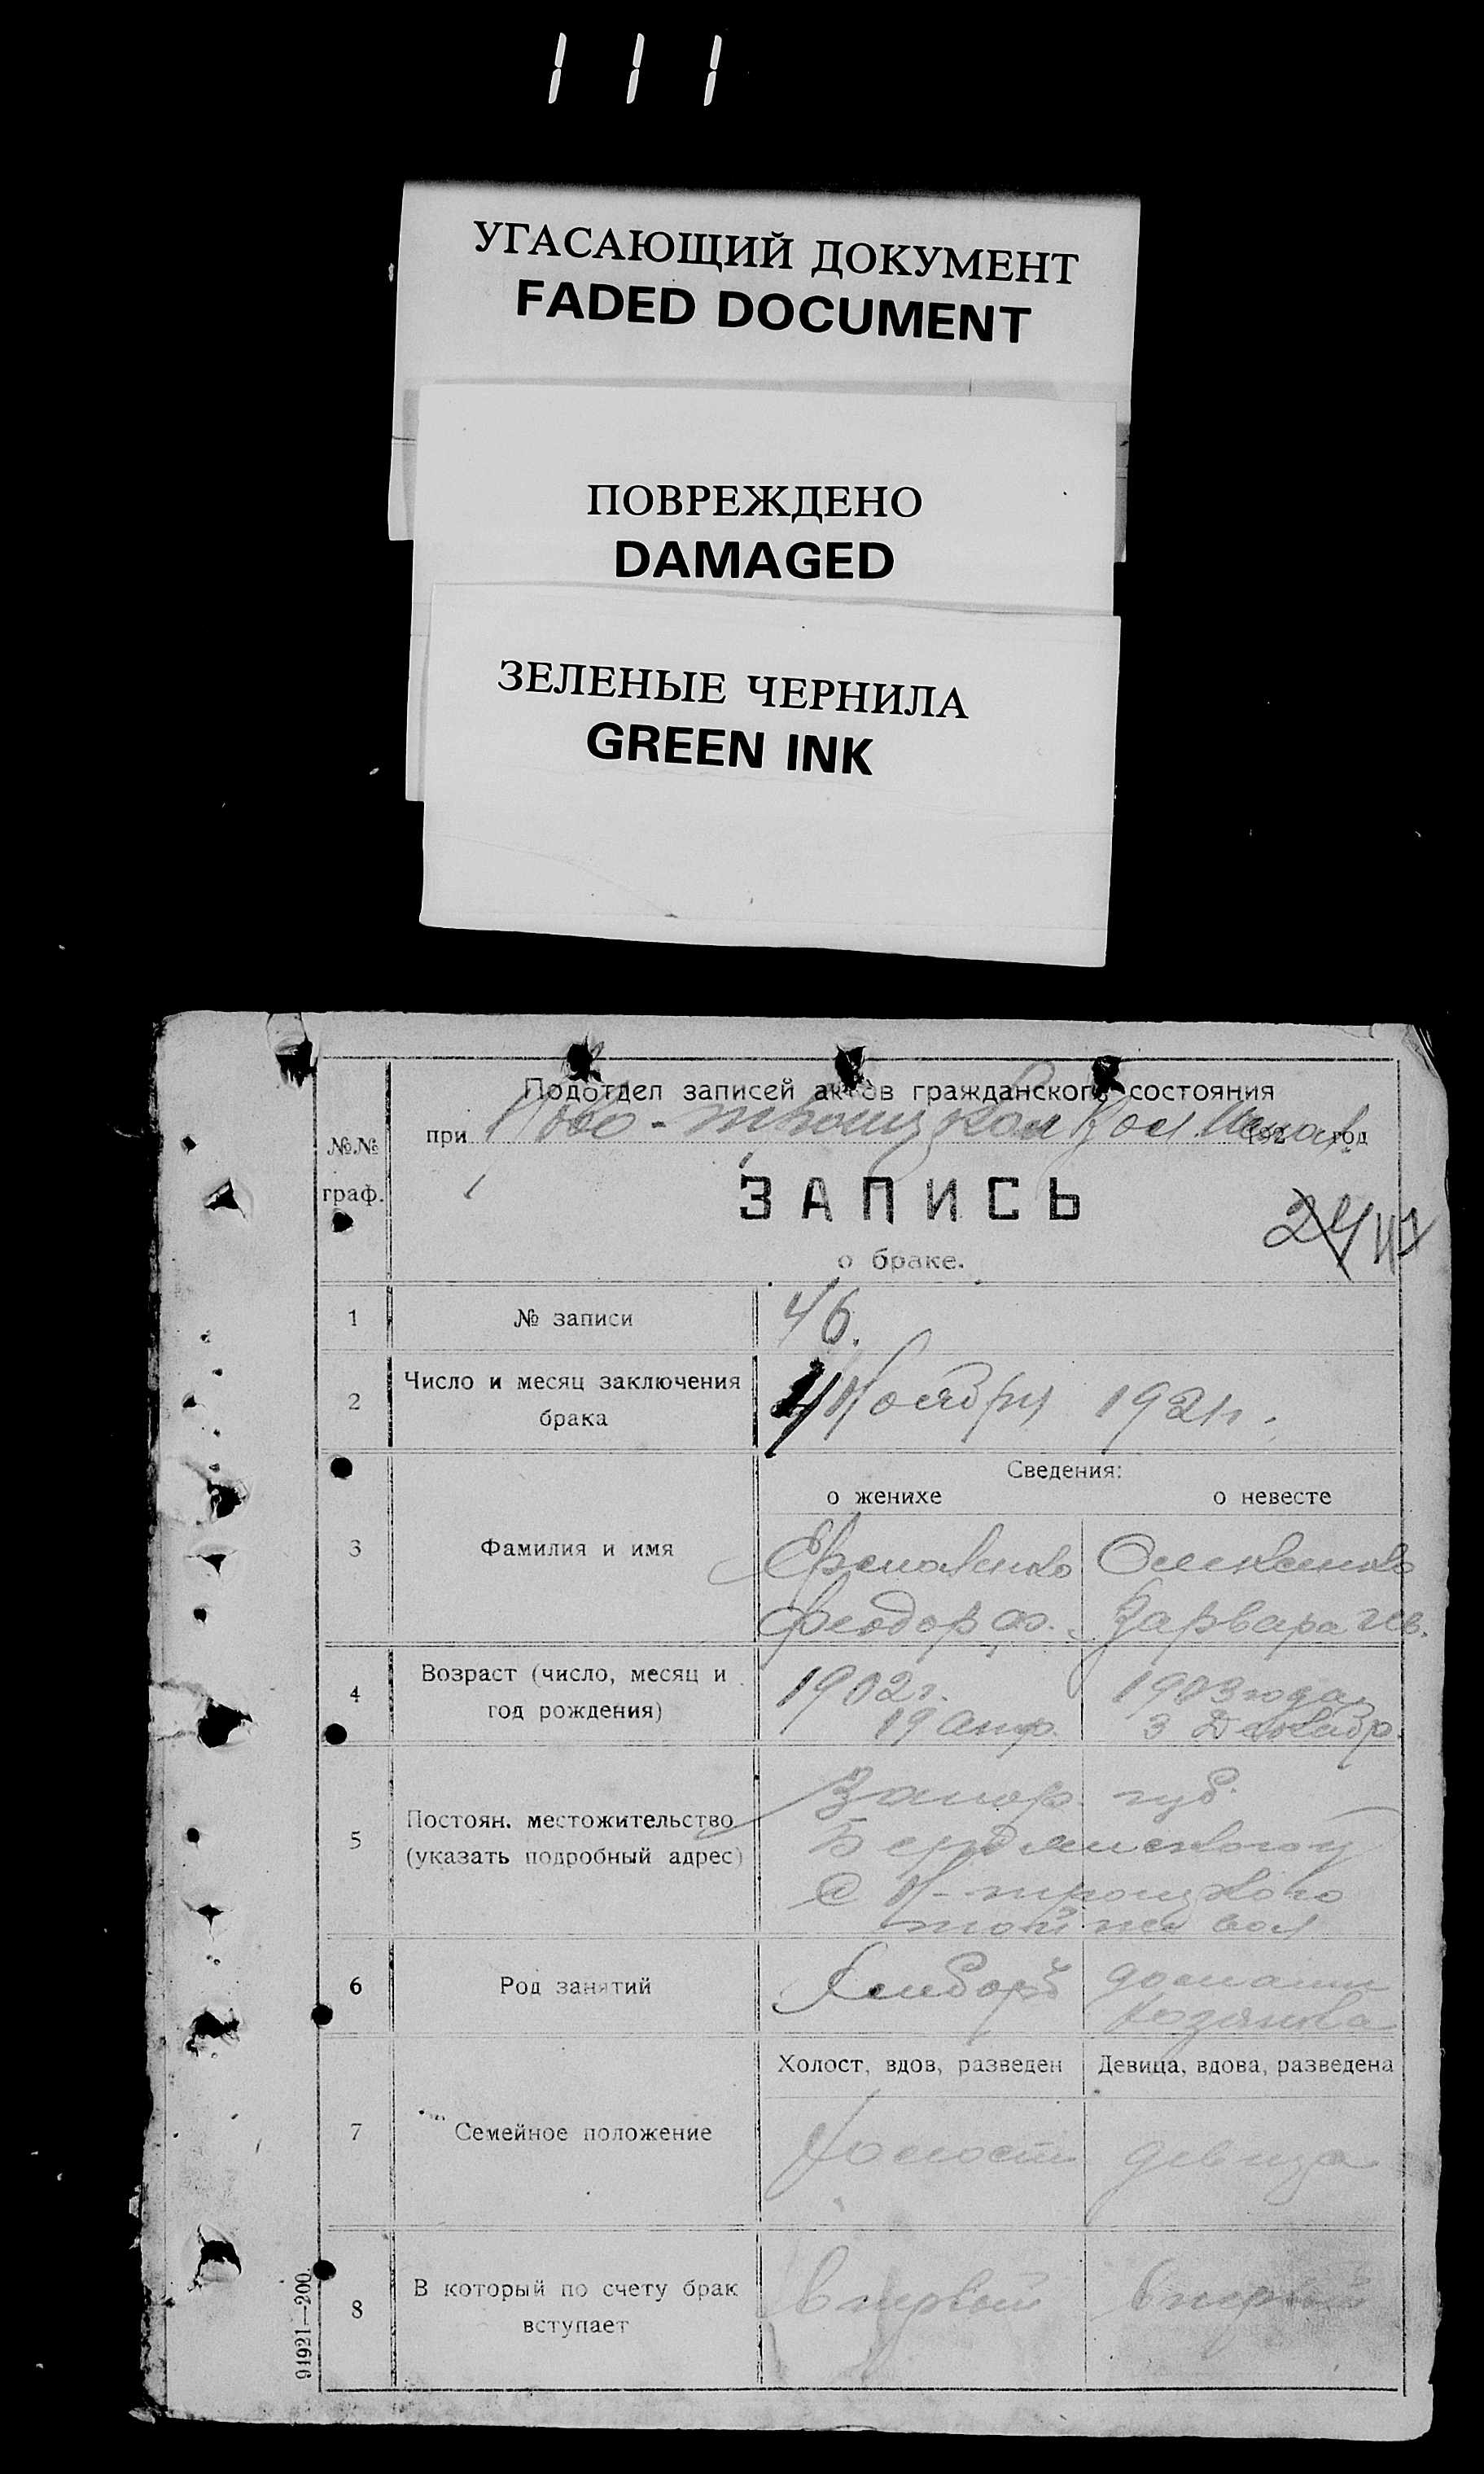 111
УГАСАЮЩИЙ ДОКУМЕНТ
FADED DOCUMENT
ПОВРЕЖДЕНО
DAMAGED
ЗЕЛЕНЫЕ ЧЕРНИЛА
GREEN INK
Подотдел записей актов гражданского состояния
при Ново-троицком 192 год
№№ граф.
ЗАПИСЬ
24
о браке.
1 № записи 46.
2 Число и месяц заключения брака 4 Ноября 1921 г.
Сведения:
о женихе о невесте
3 Фамилия и имя Ермоленко
Феодор Ф. Варвара
4 Возраст (число, месяц и год рождения)
1902 г. 1903 года
19 Апр. 3 Декабр.
5 Постоян. местожительство (указать подробный адрес)
Запор. губ.
Бердянского у
с Н-троицкого
той же вол
6 Род занятий Хлебороб домашн
хозяйка
Холост, вдов, разведен Девица, вдова, разведена
7 Семейное положение Холост девица
8 В который по счету брак вступает в первый в первый
91921—200.